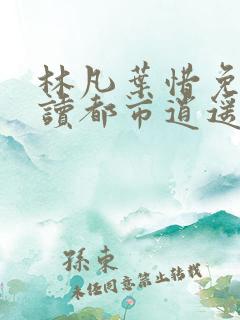 林凡葉惜免
讀都市逍遥
孫東
未经同意禁止转载